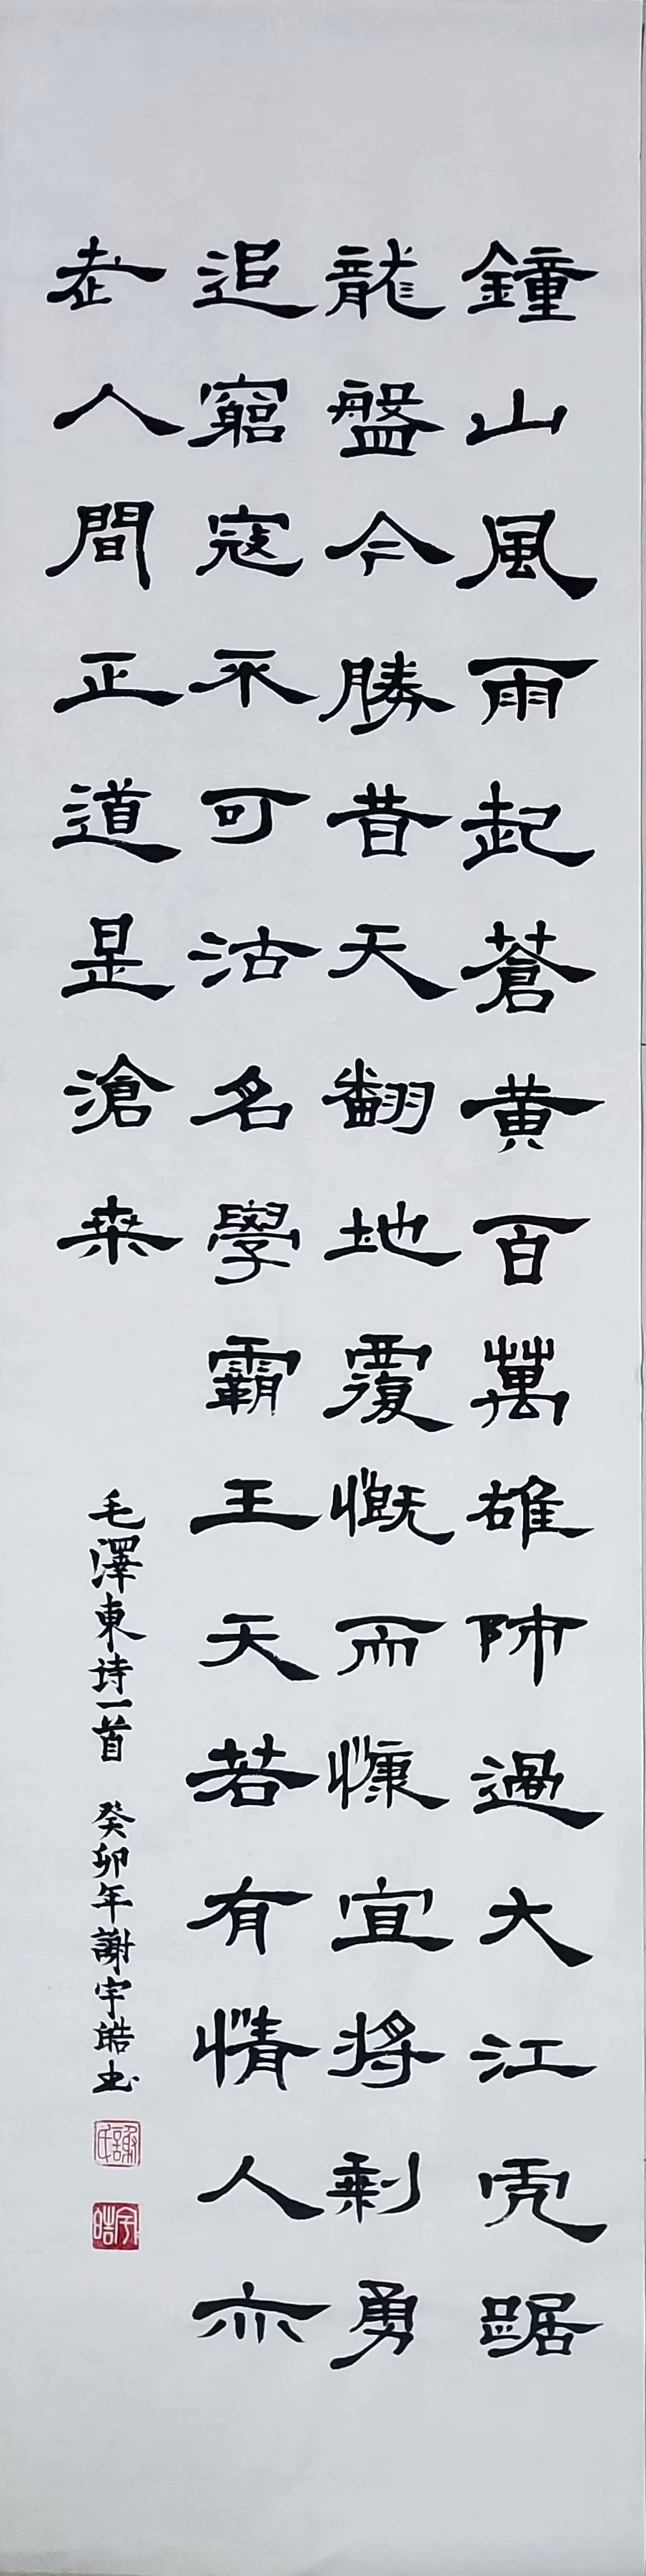 鐘山風雨起蒼黄百萬雄師過大江虎踞
龍盤今勝昔天翻地覆慨而慷宜將剩勇
追窮寇不可沽名學霸王天若有情人亦
老人間正道是滄桒
毛澤東诗一首 癸卯年謝宇皓书
謝氏
宇皓